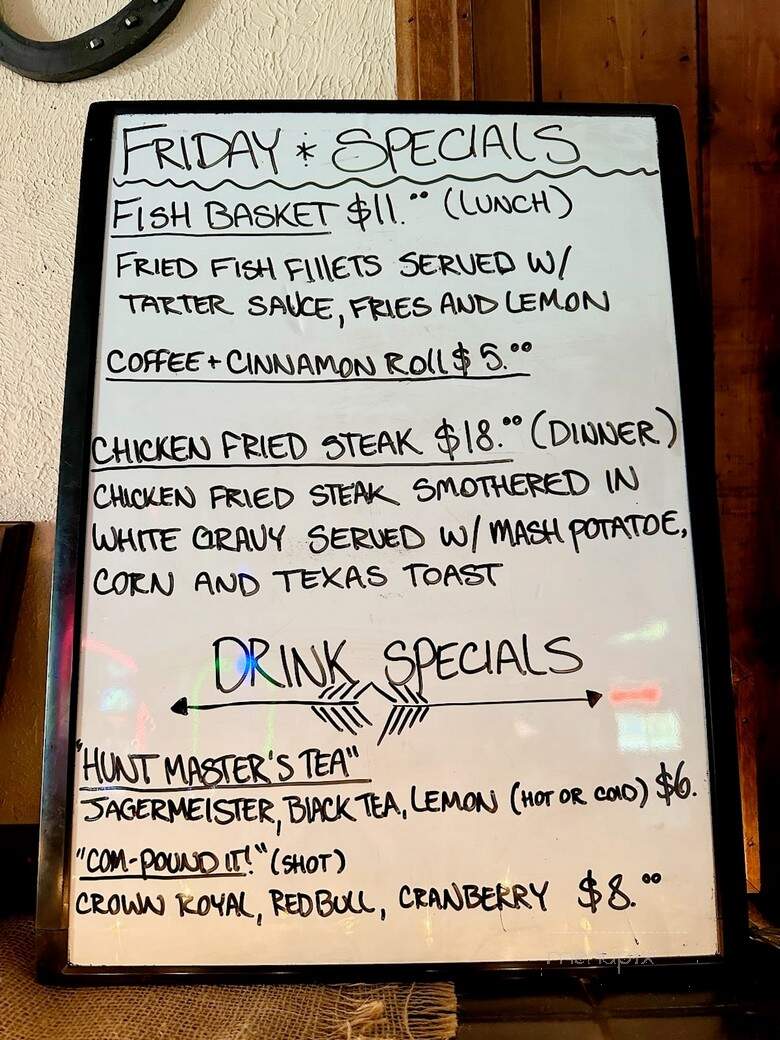 FRIDAY * SPECIALS
FISH BASKET $11.00 (LUNCH)
FRIED FISH FILLETS SERVED W/
TARTER SAUCE, FRIES AND LEMON
COFFEE + CINNAMON ROLL $5.00
CHICKEN FRIED STEAK $18.00 (DINNER)
CHICKEN FRIED STEAK SMOTHERED IN
WHITE GRAVY SERVED W/ MASH POTATOE,
CORN AND TEXAS TOAST
DRINK SPECIALS
"HUNT MASTER'S TEA"
JAGERMEISTER, BLACK TEA, LEMON (HOT OR COLD) $6.
"COM-POUND IT!" (SHOT)
CROWN ROYAL, REDBULL, CRANBERRY $8.00